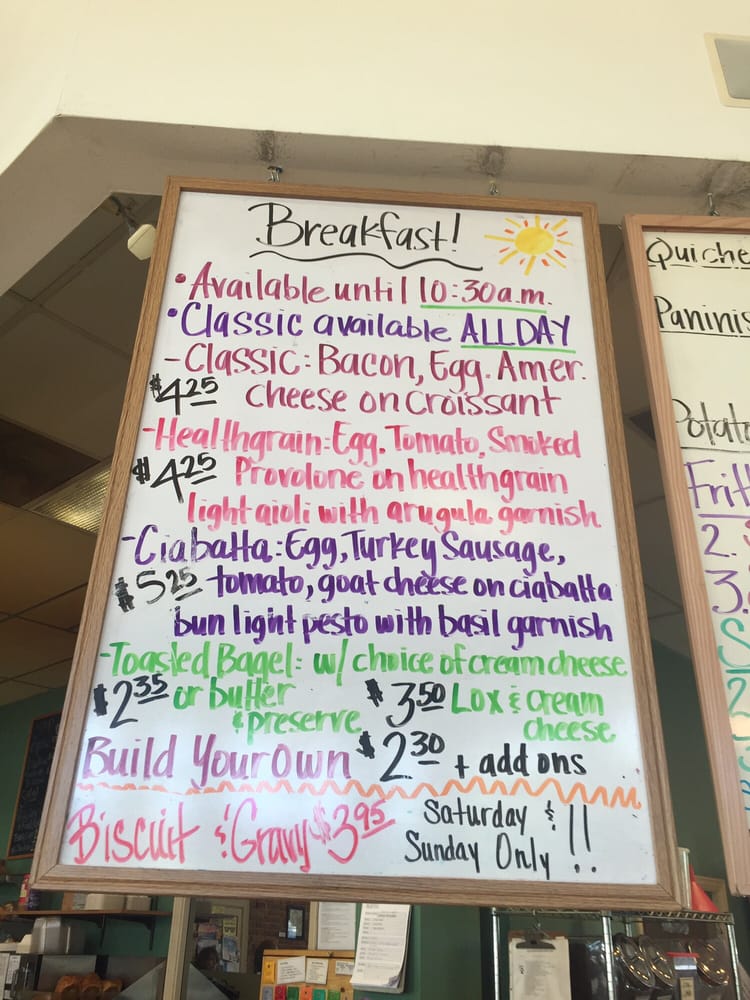 Breakfast!
• Available until 10:30a.m.
• Classic available ALLDAY
- Classic: Bacon, Egg. Amer.
$4.25 cheese on croissant
- Healthgrain: Egg. Tomato, Smoked
$4.25 Provolone on healthgrain
light aioli with arugula garnish
- Ciabatta: Egg, Turkey Sausage,
$5.25 tomato, goat cheese on ciabatta
bun light pesto with basil garnish
- Toasted Bagel: w/ choice of cream cheese
$2.35 or butter & preserve
$3.50 Lox & cream cheese
Build Your Own $2.30 + add ons
Biscuit & Gravy $3.95 Saturday &
Sunday Only !!
Quiche
Paninis
2.
3.